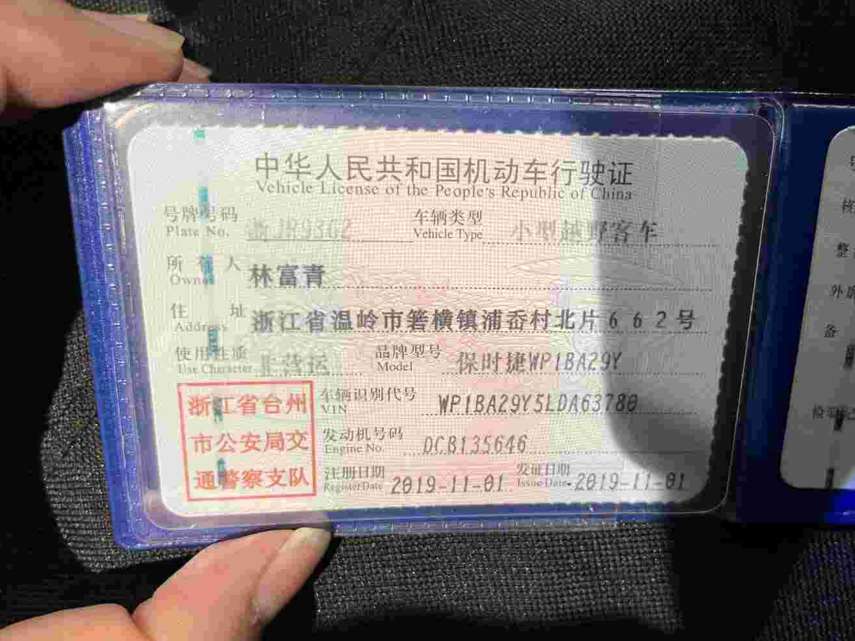 中华人民共和国机动车行驶证
Vehicle License of the People's Republic of China
号牌号码
Plate No.
浙JR9862
车辆类型
Vehicle Type
小型越野客车
所有人
Owner
林富青
住址
Address
浙江省温岭市箬横镇浦岙村北片662号
使用性质
Use Character
非营运
品牌型号
Model
保时捷WP1BA29Y
浙江省台州
市公安局交
通警察支队
车辆识别代号
VIN
WP1BA29Y5LDA63780
发动机号码
Engine No.
DCB135646
注册日期
Register Date
2019-11-01
发证日期
Issue Date
2019-11-01